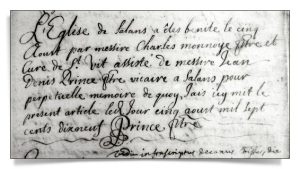 L'Eglise de Salans a étés benite le cinq
Aoust par messire Charles monnoye ptre et
curé de St. Vit assisté de messire Jean
Denis Prince ptre vicaire a Salans pour
perpetuelle memoire de quoy jais icy mit le
present article le jour cinq aoust mil sept
cents dixneuf Prince ptre